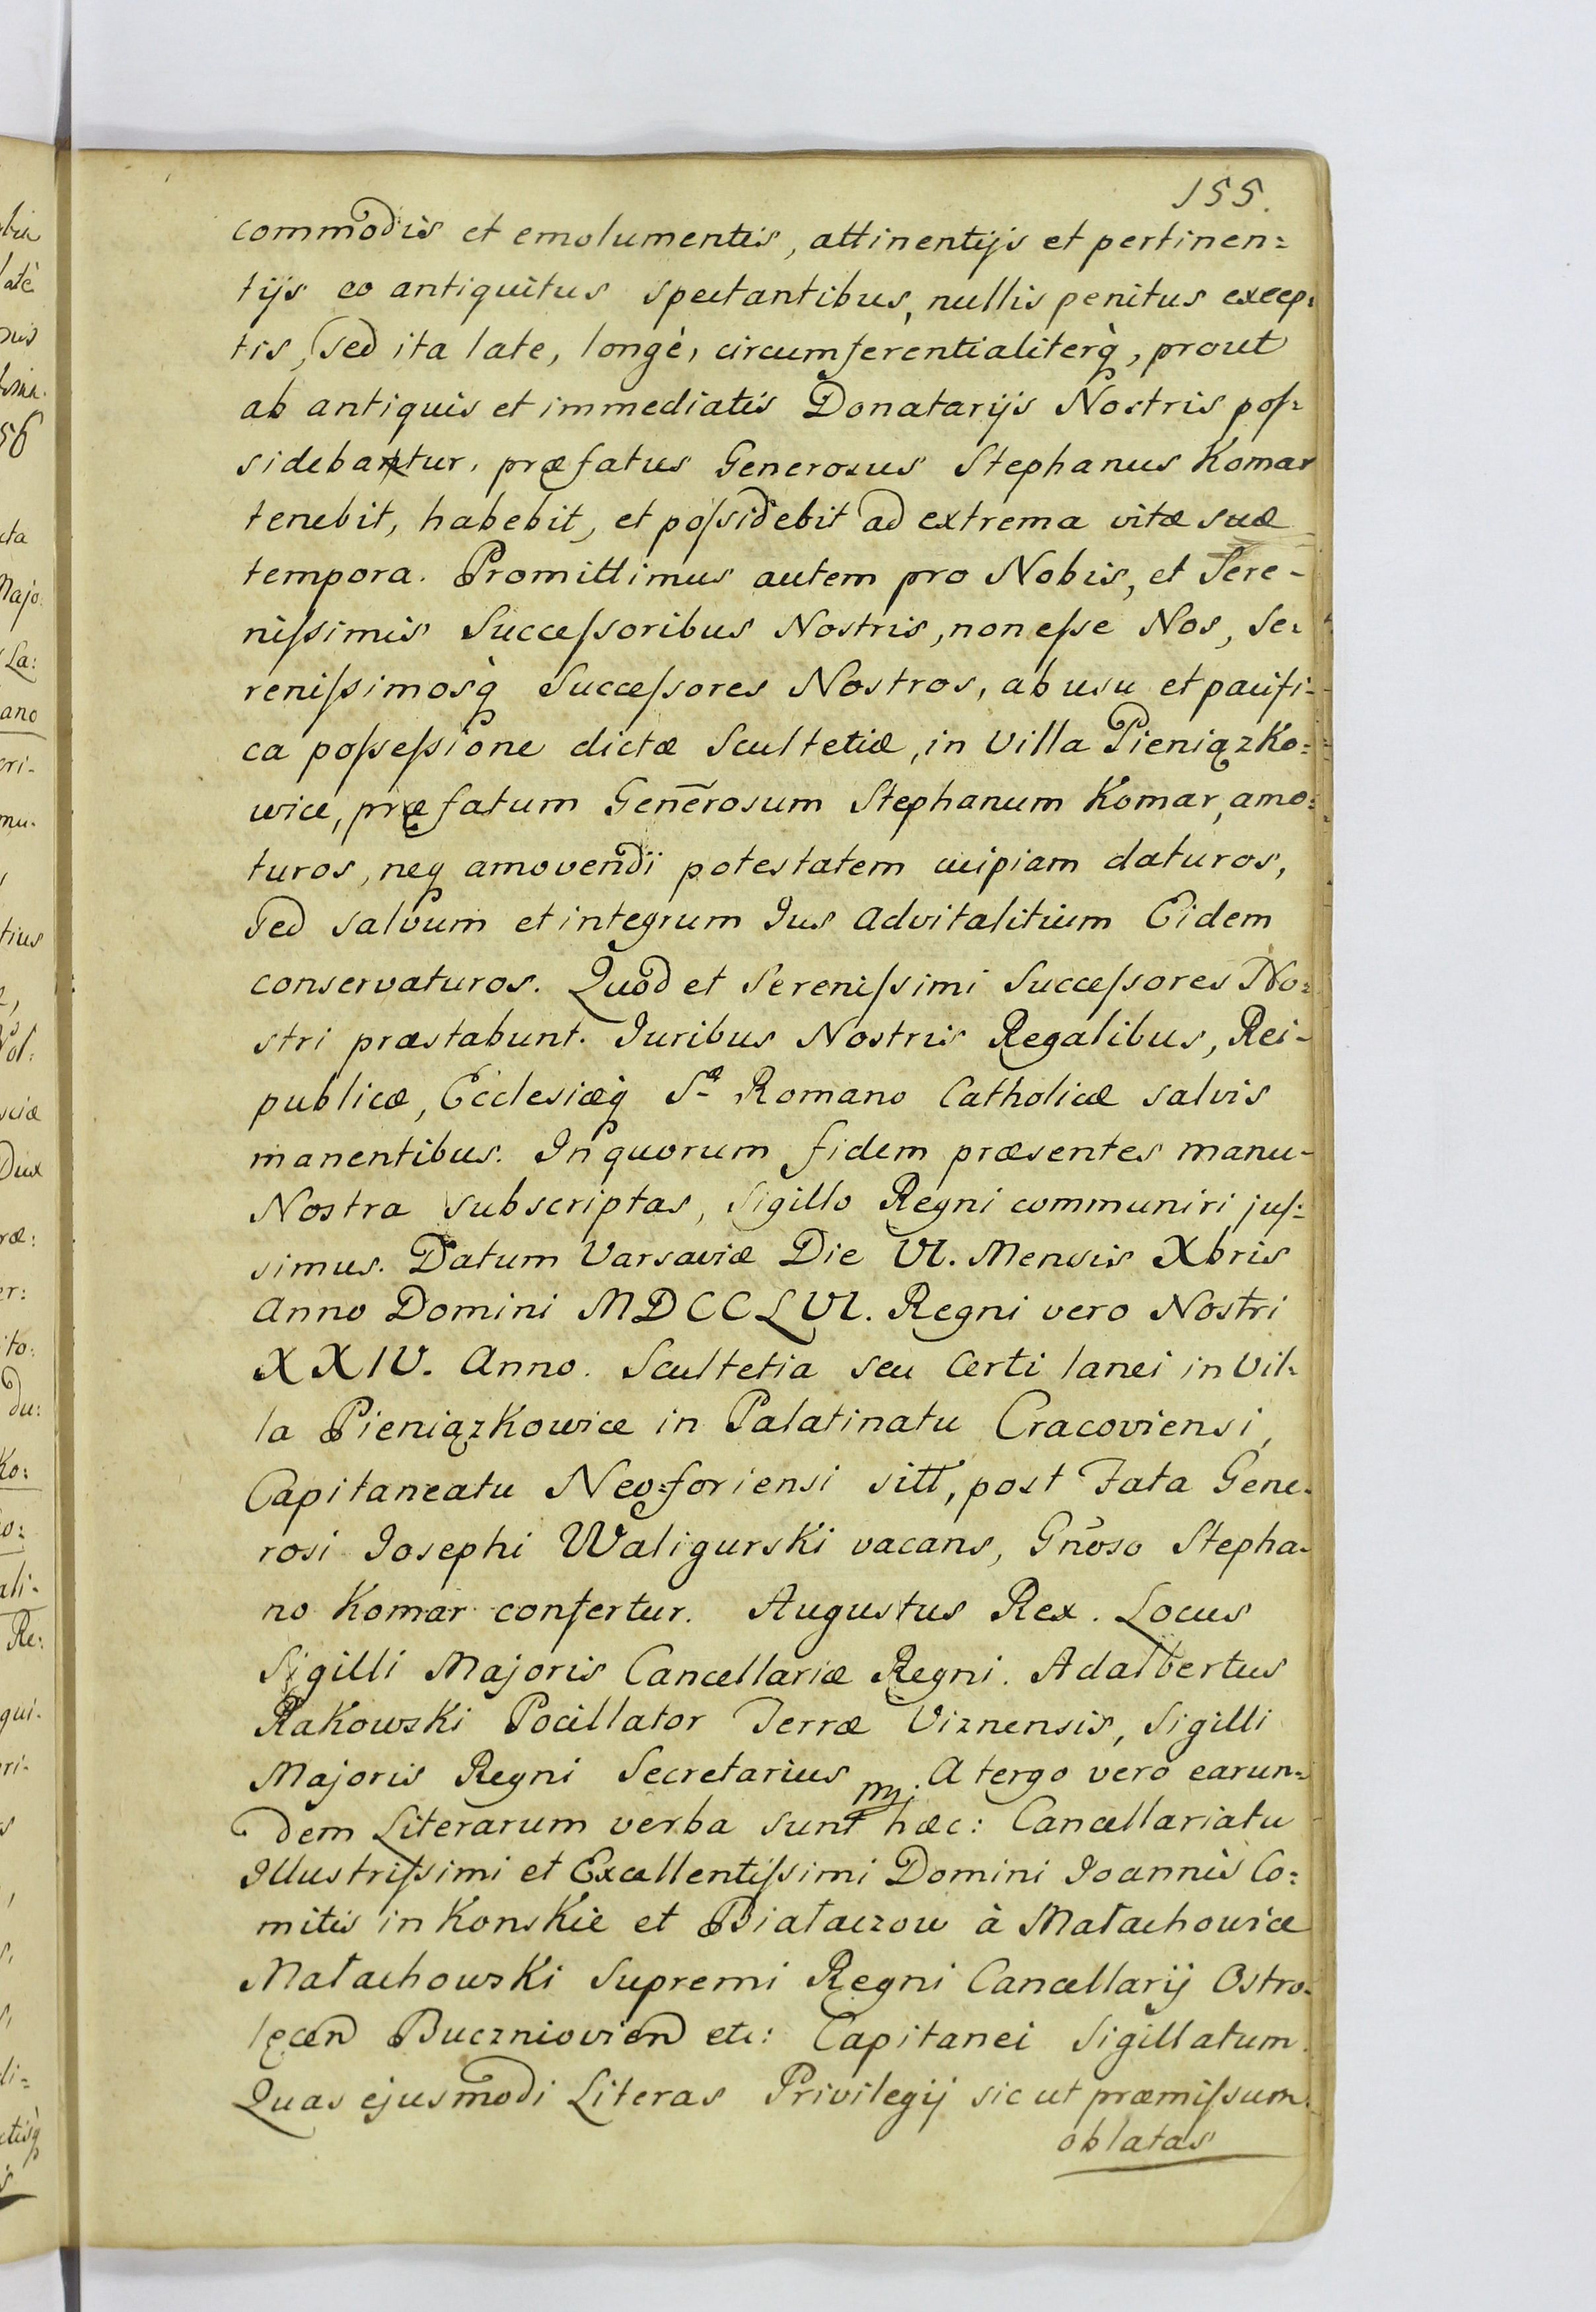 155.
commodis et emolumentis, attinentijs et pertinen=
tijs eo antiquitus spectantibus, nullis penitus excep=
tis, sed ita late, longè, circumferentialiterq̀, prout
ab antiquis et immediatis Donatarijs Nostris pos=
sidebantur, præfatus Generosus Stephanus Komar
tenebit, habebit, et possidebit ad extrema vitæ suæ
tempora. Promittimus autem pro Nobis, et Sere-
nissimis Successoribus Nostris, non esse Nos, Se=
renissimosq̀ Successores Nostros, ab usu et pacifi-
ca possessione dictæ Scultetiæ, in Villa Pieniązko=
wice, præfatum Gene̅rosum Stephanum Komar, amo=
turos, neq amovendi potestatem cuipiam daturos,
sed salvum et integrum Jus advitalitium Eidem
conservaturos. Quod et Serenissimi Successores No=
stri præstabunt. Juribus Nostris Regalibus, Rei-
publicæ, Ecclesiæq̀ Sæ Romano Catholicæ salvis
manentibus. In quorum fidem præsentes manu-
Nostra subscriptas, Sigillo Regni communiri jus=
simus. Datum Varsaviæ Die VI. Mensis Xbris
Anno Domini MDCCLVI. Regni vero Nostri
XXIV. Anno. Scultetia seu Certi lanei in Vil=
la Pieniązkowice in Palatinatu Cracoviensi,
Capitaneatu Neo=foriensi sitt, post Fata Gene=
rosi Josephi Waligurski vacans, Gn̄oso Stepha=
no Komar confertur. Augustus Rex. Locus
Sigilli Majoris Cancellariæ Regni. Adalbertus
Rakowski Pocillator Terræ Viznensis, Sigilli
Majoris Regni Secretarius mp. A tergo vero earun=
dem Literarum verba sunt hæc: Cancellariatu
Illustrissimi et Excellentissimi Domini Joannis Co=
mitis in Konskie et Białaczow à Małachowice
Małachowski Supremi Regni Cancellarij Ostro=
łęcen Buczniovien etc: Capitanei Sigillatum.
Quas ejusmodi Literas Privilegij sic ut præmissum
oblatas